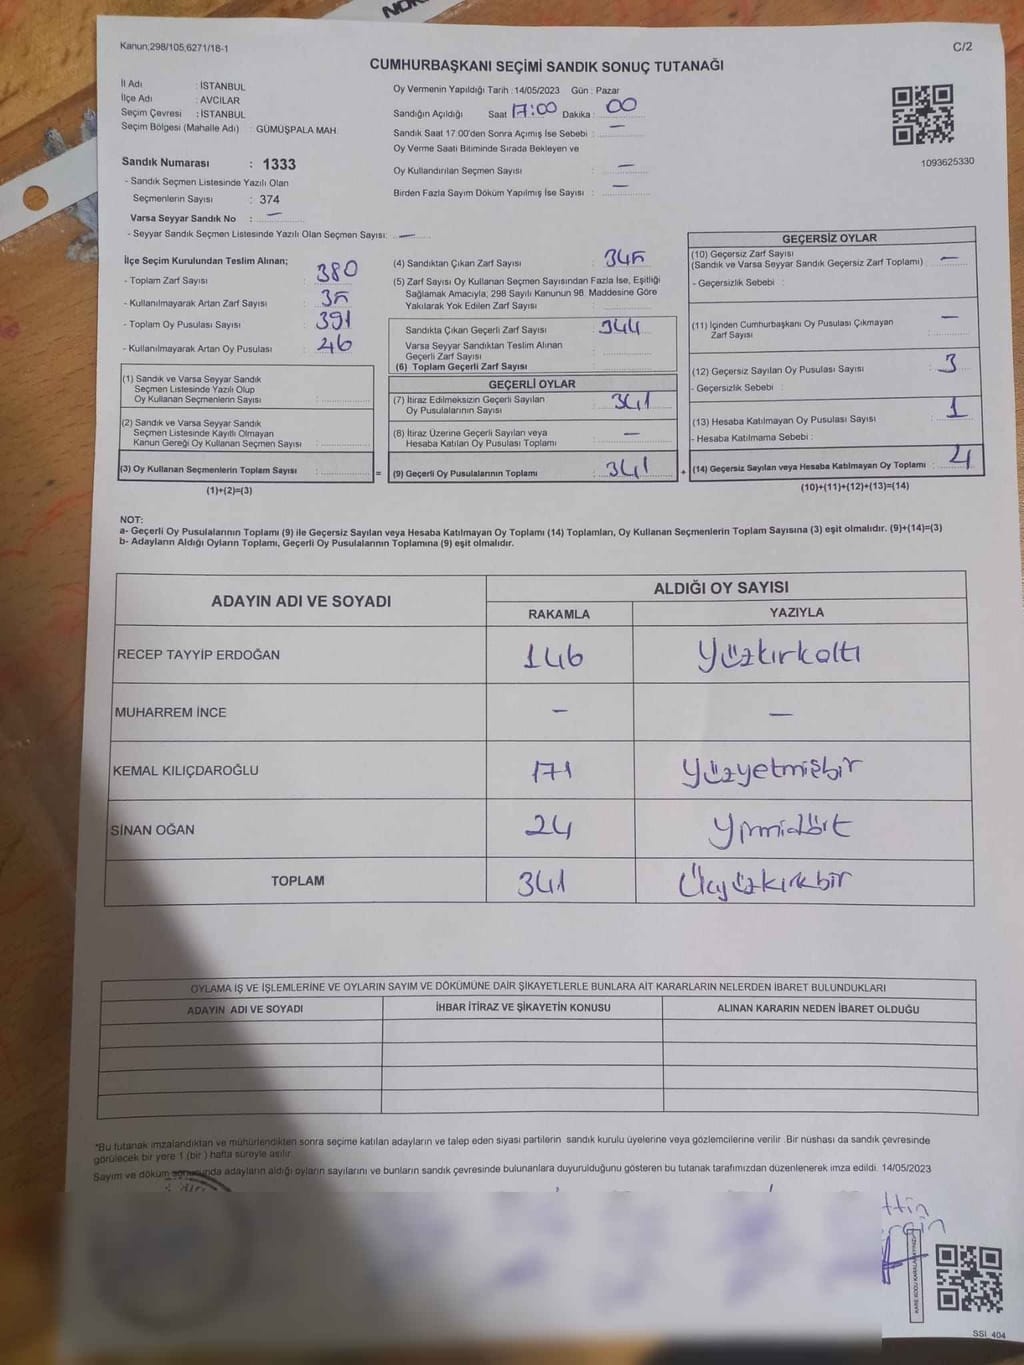 Kanun;298/105,6271/18-1
C/2
CUMHURBAŞKANI SEÇİMİ SANDIK SONUÇ TUTANAĞI
İl Adı : İSTANBUL
İlçe Adı : AVCILAR
Seçim Çevresi : İSTANBUL
Seçim Bölgesi (Mahalle Adı) : GÜMÜŞPALA MAH.
Oy Vermenin Yapıldığı Tarih : 14/05/2023 Gün : Pazar
Sandığın Açıldığı Saat 17:00 Dakika : 00
Sandık Saat 17.00'den Sonra Açımış İse Sebebi : —
Oy Verme Saati Bitiminde Sırada Bekleyen ve
Oy Kullandırılan Seçmen Sayısı : —
Birden Fazla Sayım Döküm Yapılmış İse Sayısı : —
1093625330
Sandık Numarası : 1333
- Sandık Seçmen Listesinde Yazılı Olan
Seçmenlerin Sayısı : 374
Varsa Seyyar Sandık No : —
- Seyyar Sandık Seçmen Listesinde Yazılı Olan Seçmen Sayısı: —
İlçe Seçim Kurulundan Teslim Alınan;
- Toplam Zarf Sayısı : 380
- Kullanılmayarak Artan Zarf Sayısı : 35
- Toplam Oy Pusulası Sayısı : 391
- Kullanılmayarak Artan Oy Pusulası : 46
(1) Sandık ve Varsa Seyyar Sandık
Seçmen Listesinde Yazılı Olup
Oy Kullanan Seçmenlerin Sayısı :
(2) Sandık ve Varsa Seyyar Sandık
Seçmen Listesinde Kayıtlı Olmayan
Kanun Gereği Oy Kullanan Seçmen Sayısı :
(3) Oy Kullanan Seçmenlerin Toplam Sayısı : =
(1)+(2)=(3)
(4) Sandıktan Çıkan Zarf Sayısı : 345
(5) Zarf Sayısı Oy Kullanan Seçmen Sayısından Fazla İse, Eşitliği
Sağlamak Amacıyla; 298 Sayılı Kanunun 98. Maddesine Göre
Yakılarak Yok Edilen Zarf Sayısı :
Sandıkta Çıkan Geçerli Zarf Sayısı : 344
Varsa Seyyar Sandıktan Teslim Alınan
Geçerli Zarf Sayısı :
(6) Toplam Geçerli Zarf Sayısı :
GEÇERLİ OYLAR
(7) İtiraz Edilmeksizin Geçerli Sayılan
Oy Pusulalarının Sayısı : 341
(8) İtiraz Üzerine Geçerli Sayılan veya
Hesaba Katılan Oy Pusulası Toplamı : —
(9) Geçerli Oy Pusulalarının Toplamı : 341 +
GEÇERSİZ OYLAR
(10) Geçersiz Zarf Sayısı
(Sandık ve Varsa Seyyar Sandık Geçersiz Zarf Toplamı) : —
- Geçersizlik Sebebi :
(11) İçinden Cumhurbaşkanı Oy Pusulası Çıkmayan
Zarf Sayısı : —
(12) Geçersiz Sayılan Oy Pusulası Sayısı : 3
- Geçersizlik Sebebi :
(13) Hesaba Katılmayan Oy Pusulası Sayısı : 1
- Hesaba Katılmama Sebebi :
(14) Geçersiz Sayılan veya Hesaba Katılmayan Oy Toplamı : 4
(10)+(11)+(12)+(13)=(14)
NOT:
a- Geçerli Oy Pusulalarının Toplamı (9) ile Geçersiz Sayılan veya Hesaba Katılmayan Oy Toplamı (14) Toplamları, Oy Kullanan Seçmenlerin Toplam Sayısına (3) eşit olmalıdır. (9)+(14)=(3)
b- Adayların Aldığı Oyların Toplamı, Geçerli Oy Pusulalarının Toplamına (9) eşit olmalıdır.
ADAYIN ADI VE SOYADI
ALDIĞI OY SAYISI
RAKAMLA YAZIYLA
RECEP TAYYİP ERDOĞAN 146 Yüzkırkaltı
MUHARREM İNCE — —
KEMAL KILIÇDAROĞLU 171 Yüzyetmişbir
SİNAN OĞAN 24 Yirmidört
TOPLAM 341 Üçyüzkırkbir
OYLAMA İŞ VE İŞLEMLERİNE VE OYLARIN SAYIM VE DÖKÜMÜNE DAİR ŞİKAYETLERLE BUNLARA AİT KARARLARIN NELERDEN İBARET BULUNDUKLARI
ADAYIN ADI VE SOYADI İHBAR İTİRAZ VE ŞİKAYETİN KONUSU ALINAN KARARIN NEDEN İBARET OLDUĞU
*Bu tutanak imzalandıktan ve mühürlendikten sonra seçime katılan adayların ve talep eden siyasi partilerin sandık kurulu üyelerine veya gözlemcilerine verilir .Bir nüshası da sandık çevresinde
görülecek bir yere 1 (bir ) hafta süreyle asılır.
Sayım ve döküm sonunda adayların aldığı oyların sayılarını ve bunların sandık çevresinde bulunanlara duyurulduğunu gösteren bu tutanak tarafımızdan düzenlenerek imza edildi. 14/05/2023
SSI 404